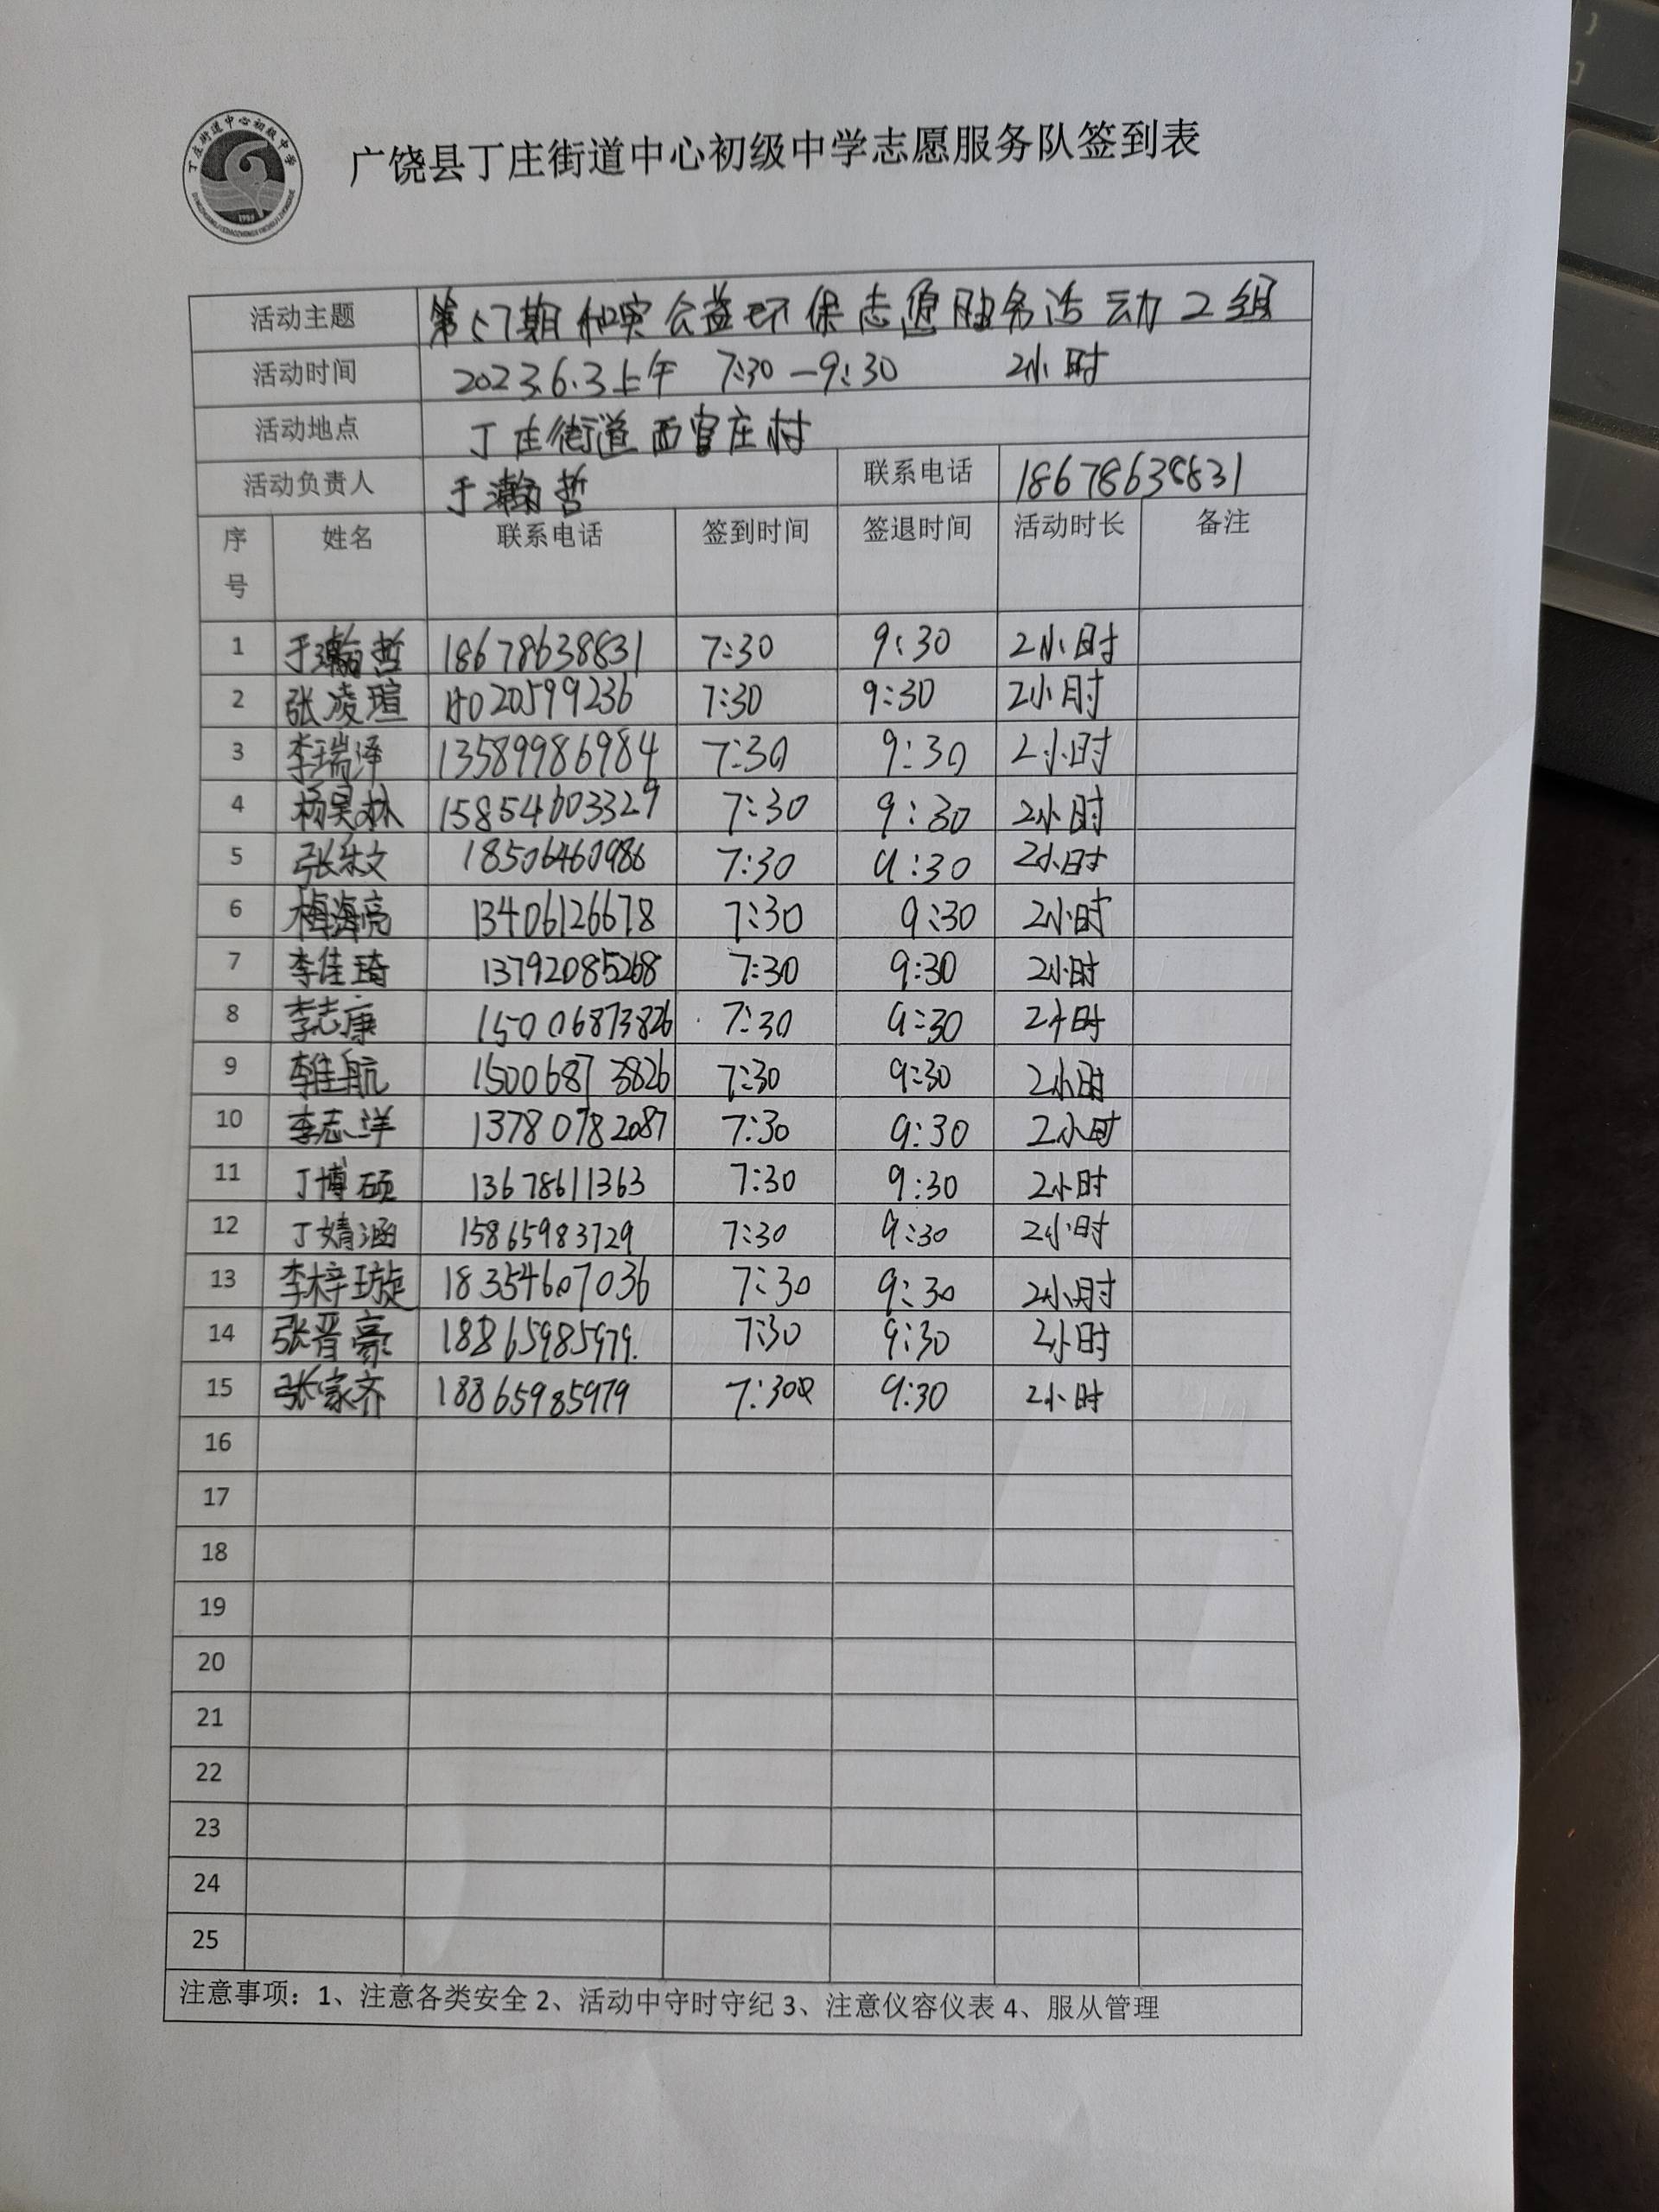 丁庄街道中心初级中学
广饶县丁庄街道中心初级中学志愿服务队签到表
活动主题 第57期和实公益环保志愿服务活动2组
活动时间 2023.6.3上午 7:30—9:30 2小时
活动地点 丁庄街道西官庄村
活动负责人 于瀚哲 联系电话 18678638831
序号 姓名 联系电话 签到时间 签退时间 活动时长 备注
1 于瀚哲 18678638831 7:30 9:30 2小时
2 张凌瑄 7:30 9:30 2小时
3 李瑞泽 13589986984 7:30 9:30 2小时
4 杨昊林 15854603329 7:30 9:30 2小时
5 18506460986 7:30 9:30 2小时
6 梅海亮 13406126678 7:30 9:30 2小时
7 李佳琦 13792085268 7:30 9:30 2小时
8 李志康 15006873826 7:30 9:30 2小时
9 李佳航 15006873826 7:30 9:30 2小时
10 李志洋 13780782087 7:30 9:30 2小时
11 丁博硕 13678611363 7:30 9:30 2小时
12 丁婧涵 15865983729 7:30 9:30 2小时
13 李梓璇 18354607036 7:30 9:30 2小时
14 张晋豪 18865985979. 7:30 9:30 2小时
15 张家齐 18865985979 7:30 9:30 2小时
16
17
18
19
20
21
22
23
24
25
注意事项：1、注意各类安全 2、活动中守时守纪 3、注意仪容仪表 4、服从管理